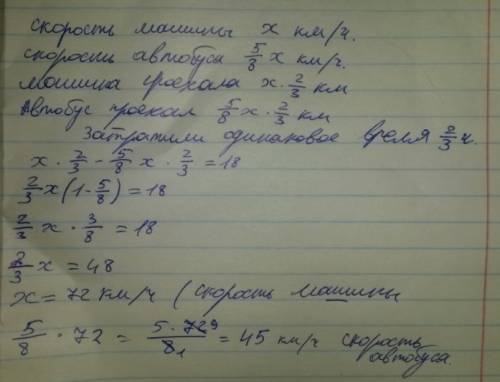 скорость машины x км/ч.
скорость автобуса 5/8 x км/ч.
машина проехала x · 2/3 км
Автобус проехал 5/8 x · 2/3 км
Затратили одинаковое время 2/3 ч.
x · 2/3 - 5/8 x · 2/3 = 18
2/3 x (1 - 5/8) = 18
2/3 x · 3/8 = 18
2/3 x = 48
x = 72 км/ч (скорость машины
5/8 · 72 = 5 · 72 9/8 1 = 45 км/ч скорость
автобуса.